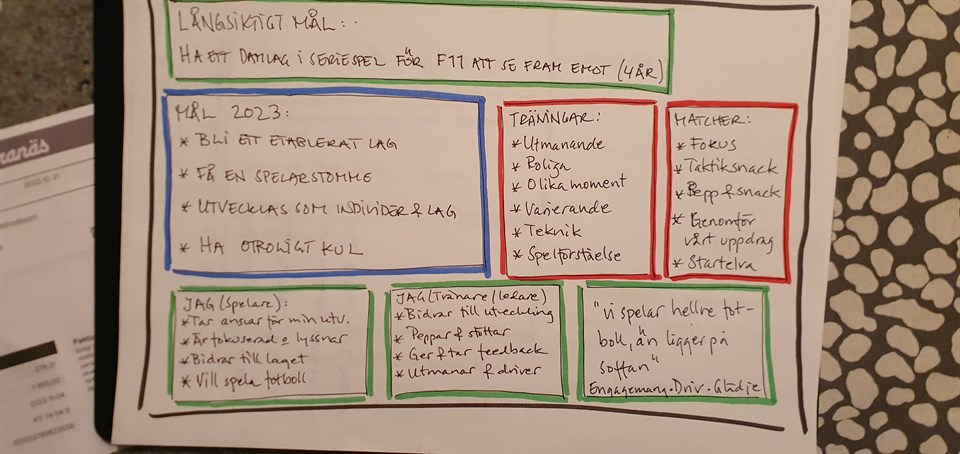 LÅNGSIKTIGT MÅL:
HA ETT DAMLAG I SERIESPEL FÖR F11 ATT SE FRAM EMOT (4 ÅR)
MÅL 2023:
* BLI ETT ETABLERAT LAG
* FÅ EN SPELARSTOMME
* UTVECKLAS SOM INDIVIDER & LAG
* HA OTROLIGT KUL
TRÄNINGAR:
* Utmanande
* Roliga
* Olika moment
* Varierande
* Teknik
* Spelförståelse
MATCHER:
* Fokus
* Taktiksnack
* Pepp & snack
* Genomför
vårt uppdrag
* Startelva
JAG (Spelare):
* Tar ansvar för min utv.
* Är fokuserad o lyssnar
* Bidrar till laget
* Vill spela fotboll
JAG (Tränare/ledare)
* Bidrar till utveckling
* Peppar & stöttar
* Ger & tar feedback
* Utmanar & driver
"vi spelar hellre fot-
boll, än ligger på
soffan"
Engagemang. Driv. Glädje
ranäs
2022-10-21
Faktu
379,17
1 955,00
2022-11-04
417 74 04-3